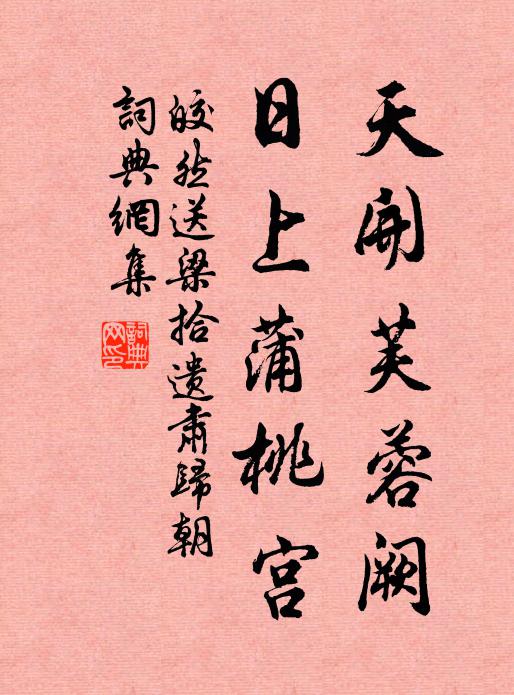 天開芙蓉闕
日上蒲桃宮
皎然送梁拾遺肅歸朝
詞典網集
詞典
网印